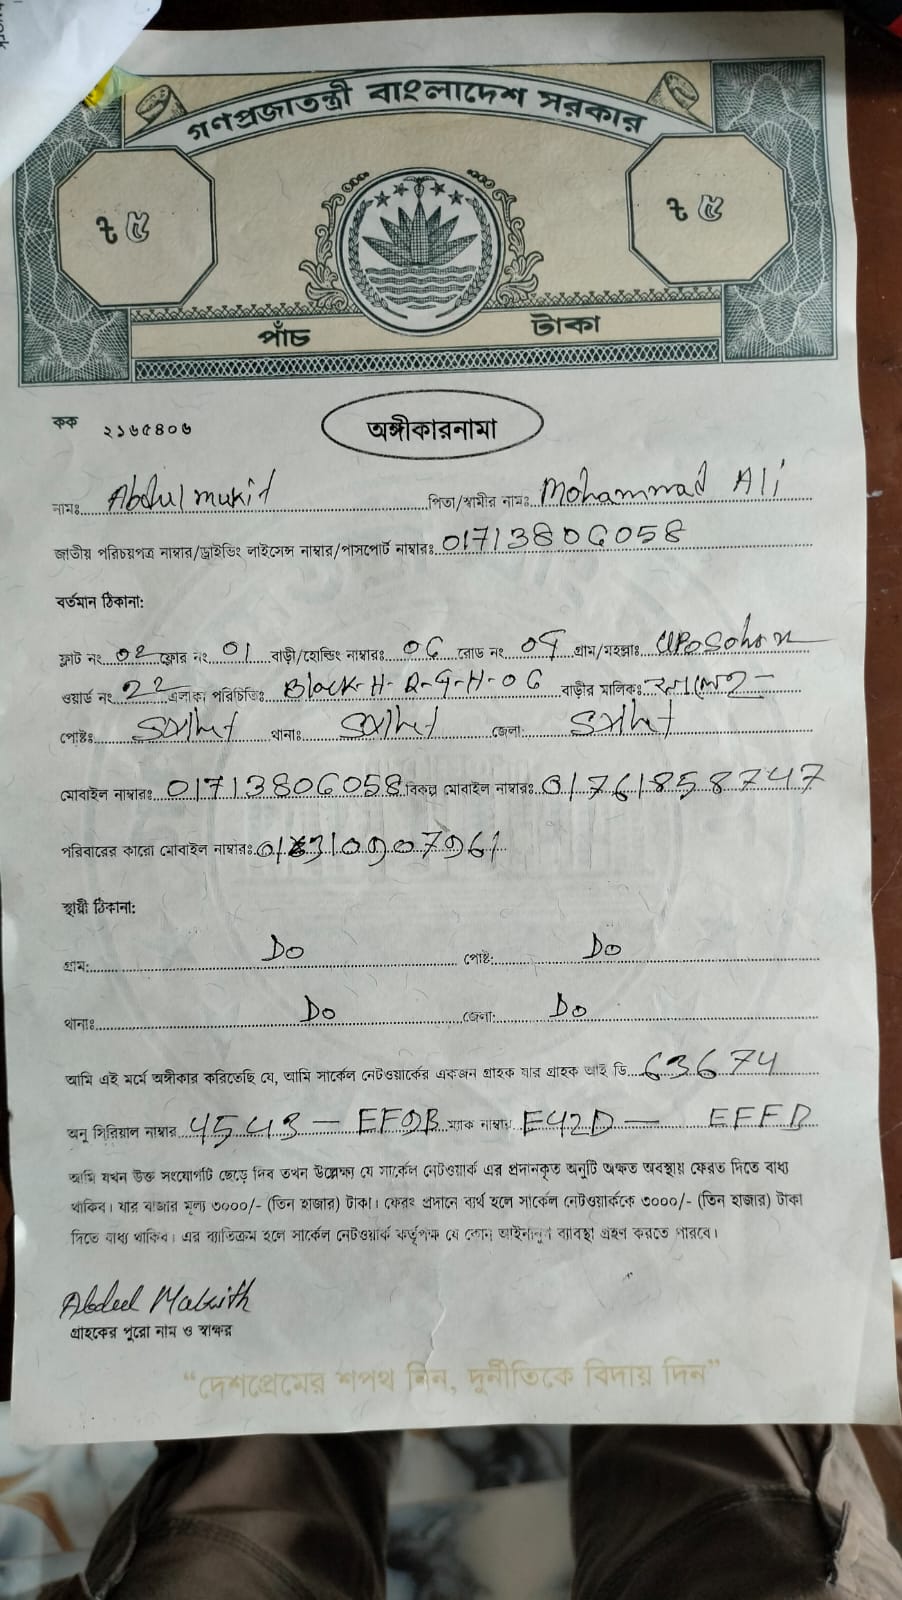 গণপ্রজাতন্ত্রী বাংলাদেশ সরকার
৳ ৫ ৳ ৫
পাঁচ টাকা
কক ২১৬৫৪০৬
অঙ্গীকারনামা
নামঃ Abdul mukit পিতা/স্বামীর নামঃ Mohammad Ali
জাতীয় পরিচয়পত্র নাম্বার/ড্রাইভিং লাইসেন্স নাম্বার/পাসপোর্ট নাম্বারঃ 01713806058
বর্তমান ঠিকানা:
ফ্লাট নং 02 ফ্লোর নং 01 বাড়ী/হোল্ডিং নাম্বারঃ 06 রোড নং 09 গ্রাম/মহল্লাঃ
ওয়ার্ড নং 22 এলাকা পরিচিতিঃ Block-H- R-9-H-06 বাড়ীর মালিকঃ
পোষ্টঃ Sylhet থানাঃ Sylhet জেলা: Sylhet
মোবাইল নাম্বারঃ 01713806058 বিকল্প মোবাইল নাম্বারঃ 01761858747
পরিবারের কারো মোবাইল নাম্বারঃ
স্থায়ী ঠিকানা:
গ্রাম: Do পোষ্ট: Do
থানাঃ Do জেলা: Do
আমি এই মর্মে অঙ্গীকার করিতেছি যে, আমি সার্কেল নেটওয়ার্কের একজন গ্রাহক যার গ্রাহক আই ডি 63674
অনু সিরিয়াল নাম্বার 4543 - EF9B ম্যাক নাম্বার E42D - EFFD
আমি যখন উক্ত সংযোগটি ছেড়ে দিব তখন উল্লেখ্য যে সার্কেল নেটওয়ার্ক এর প্রদানকৃত অনুটি অক্ষত অবস্থায় ফেরত দিতে বাধ্য
থাকিব। যার বাজার মূল্য ৩০০০/- (তিন হাজার) টাকা। ফেরৎ প্রদানে ব্যর্থ হলে সার্কেল নেটওয়ার্ককে ৩০০০/- (তিন হাজার) টাকা
দিতে বাধ্য থাকিব। এর ব্যতিক্রম হলে সার্কেল নেটওয়ার্ক কর্তৃপক্ষ যে কোন আইনানুগ ব্যাবস্থা গ্রহণ করতে পারবে।
Abdul Mukith
গ্রাহকের পুরো নাম ও স্বাক্ষর
“দেশপ্রেমের শপথ নিন, দুর্নীতিকে বিদায় দিন”